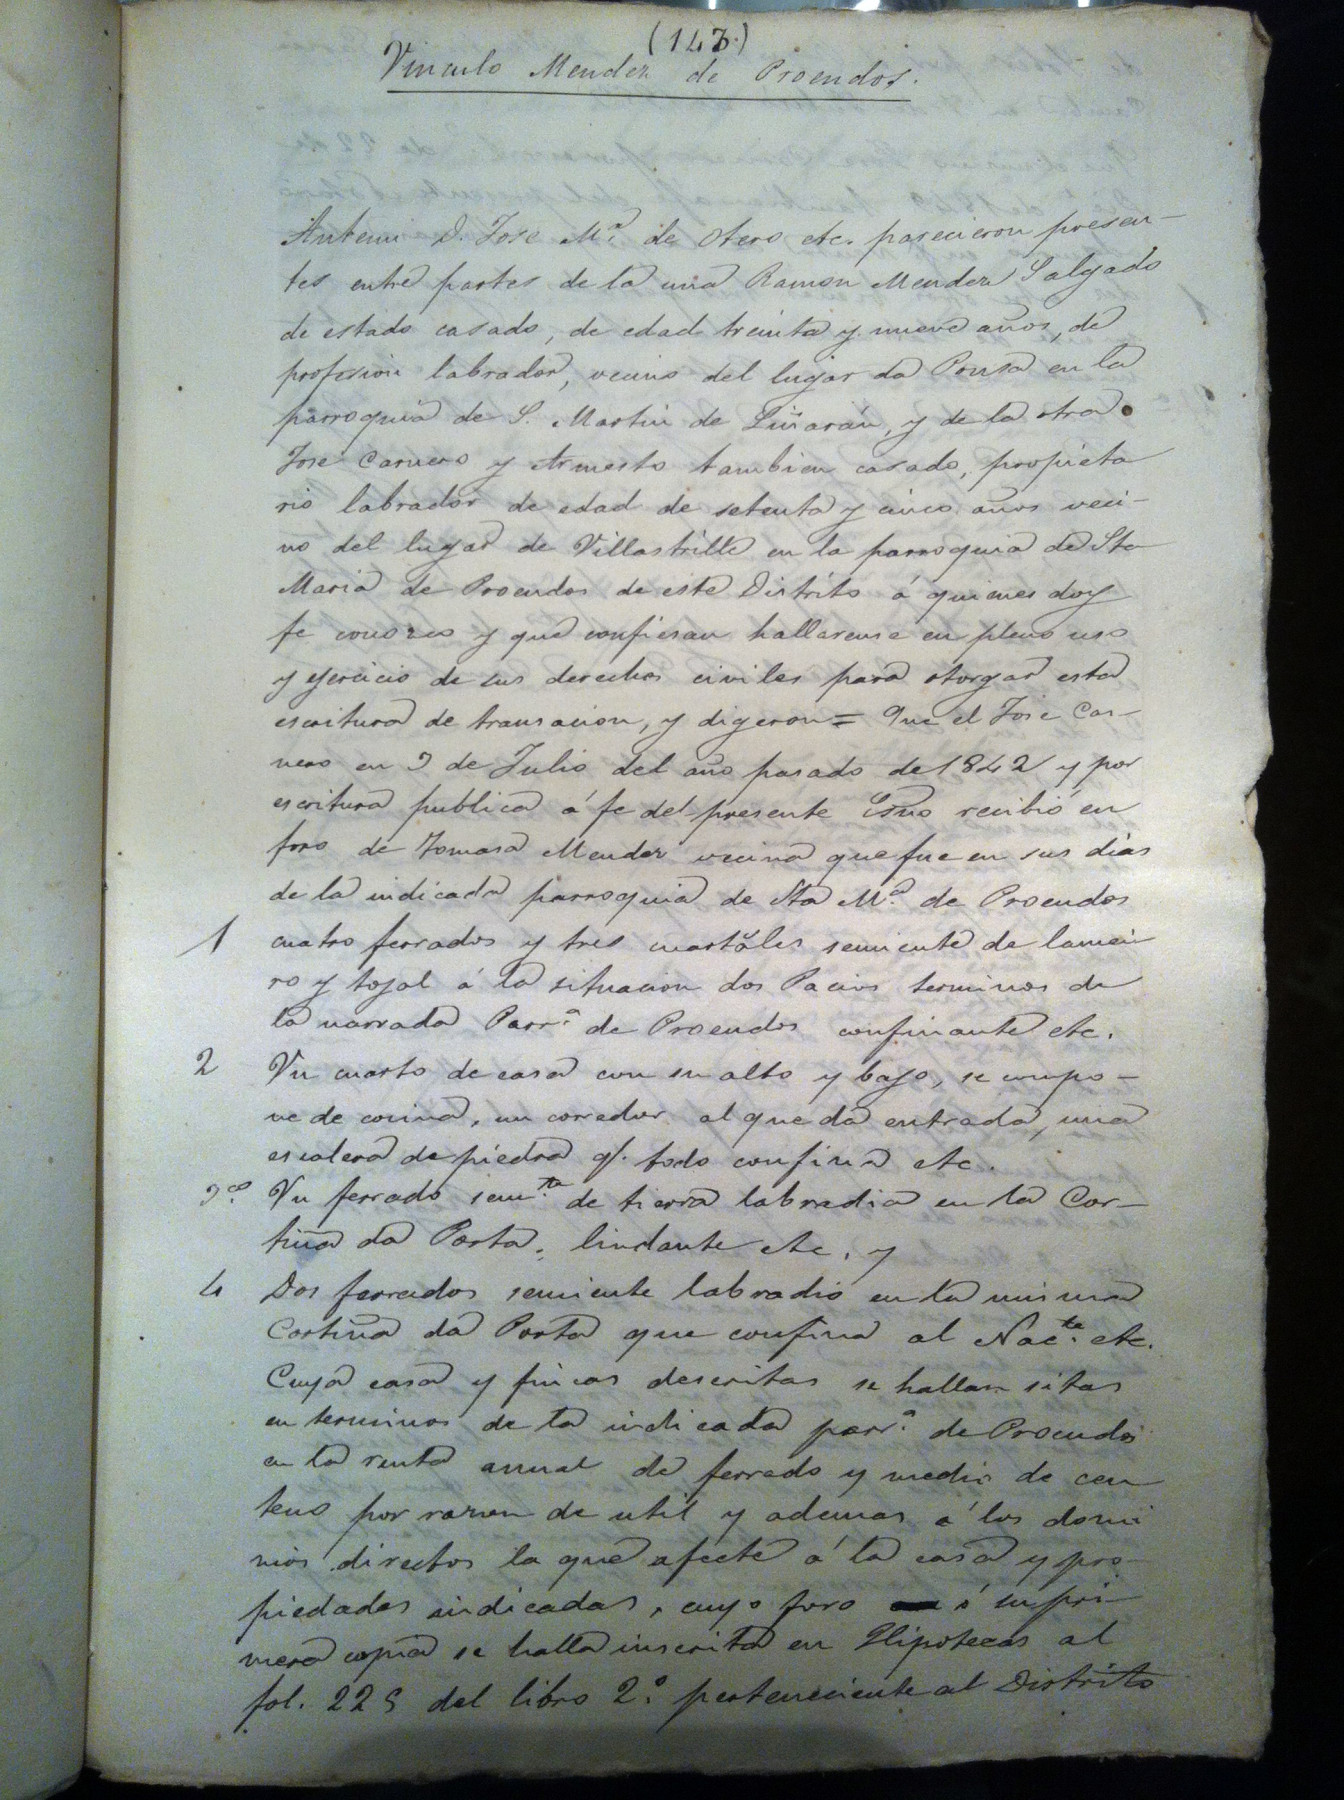 (147.)
Vinculo Mendez de Proendos.
Antemi D. Jose Mª. de Otero etc. parecieron presen-
tes entre partes de la una Ramon Mendez Salgado
de estado casado, de edad treinta y nueve años, de
profesion labrador, vecino del lugar da Pousa en la
parroquia de S. Martin de Liñarán, y de la otra
Jose Carnero y Armesto tambien casado, propieta
rio labrador de edad de setenta y cinco años veci-
no del lugar de Villastrille en la parroquia de Sta
Maria de Proendos de este Distrito á quienes doy
fe conozco y que confiesan hallarense en pleno uso
y ejercicio de sus derechos civiles para otorgar esta
escritura de transacion, y digeron = Que el Jose Car-
nero en 3 de Julio del año pasado de 1842 y por
escritura publica á fe del presente Esno recibió en
foro de Tomasa Mendez vecina que fue en sus dias
de la indicada parroquia de Sta Mª. de Proendos
1 cuatro ferrados y tres cuartales semiente de lamei
ro y tojal á la situacion dos Pacios terminos de
la narrada Parrª. de Proendos confinante etc.
2 Vn cuarto de casa con su alto y bajo, se compo-
ne de cocina, un corredor al que da entrada, una
escalera de piedra q. todo confina etc.
3º. Vn ferrado semte. de tierra labradia en la Cor-
tiña da Porta, lindante etc. y
4 Dos ferrados semiente labradio en la misma
Cortiña da Porta que confina al Nacte. etc.
Cuya casa y fincas descritas se hallan sitas
en terminos de la indicada parrª. de Proendos
en la renta annal de ferrado y medio de cen
teno por razon de util y ademas á los domi
nios directos la que afecte á la casa y pro-
piedades indicadas, cuyo foro ó su pri-
mera copia se halla inscrita en Hipotecas al
fol. 225 del libro 2º. perteneciente al Distrito